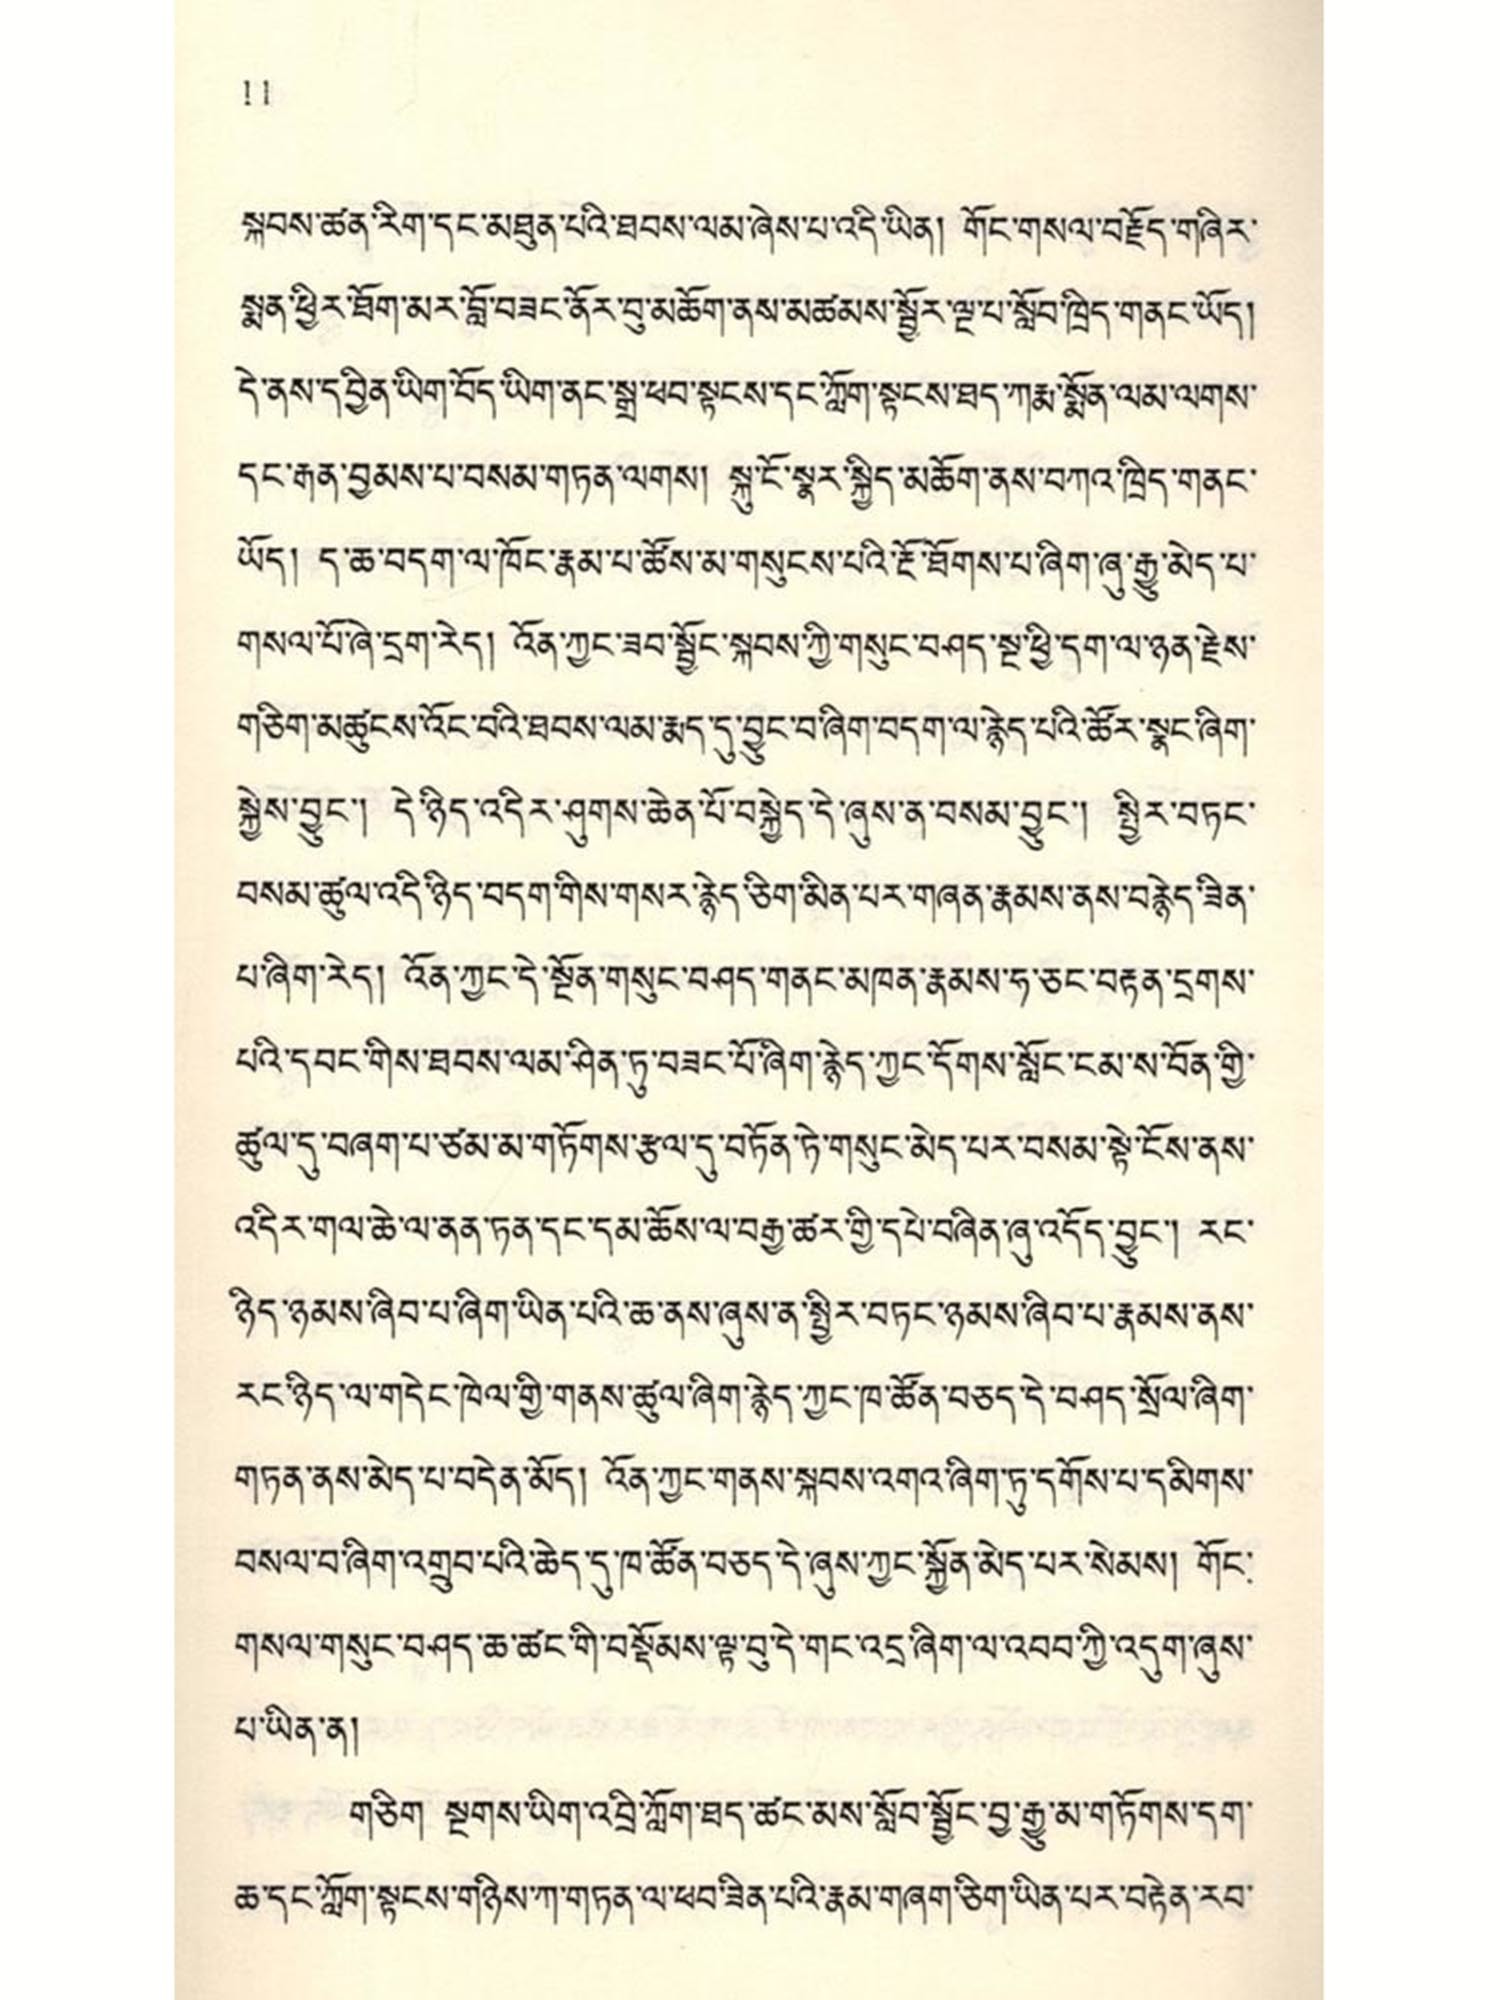 11
སྐབས་ཚན་རིག་དང་མཐུན་པའི་ཐབས་ལམ་ཞེས་པ་འདི་ཡིན། གོང་གསལ་བརྗོད་གཞིར་
སྨན་ཕྱིར་ཐོག་མར་བློ་བཟང་ནོར་བུ་མཆོག་ནས་མཚམས་སྦྱོར་ལྔ་པ་སློབ་ཁྲིད་གནང་ཡོད།
དེ་ནས་དབྱིན་ཡིག་བོད་ཡིག་ནང་སྒྲ་ཕབ་སྟངས་དང་ཀློག་སྟངས་ཐད་ཀརྨ་སྨོན་ལམ་ལགས་
དང་རྒན་བྱམས་པ་བསམ་གཏན་ལགས། སྐུ་ངོ་སྣར་སྐྱིད་མཆོག་ནས་བཀའ་ཁྲིད་གནང་
ཡོད། ད་ཆ་བདག་ལ་ཁོང་རྣམ་པ་ཚོས་མ་གསུངས་པའི་ངོ་ཐོགས་པ་ཞིག་ཞུ་རྒྱུ་མེད་པ་
གསལ་པོ་ཞེ་དྲག་རེད། འོན་ཀྱང་ཟབ་སྦྱོང་སྐབས་ཀྱི་གསུང་བཤད་སྔ་ཕྱི་དག་ལ་ཉན་རྗེས་
གཅིག་མཚུངས་འོང་བའི་ཐབས་ལམ་རྨད་དུ་བྱུང་བ་ཞིག་བདག་ལ་རྙེད་པའི་ཚོར་སྣང་ཞིག་
སྐྱེས་བྱུང་། དེ་ཉིད་འདིར་ཤུགས་ཆེན་པོ་བསྐྱེད་དེ་ཞུས་ན་བསམ་བྱུང་། སྤྱིར་བཏང་
བསམ་ཚུལ་འདི་ཉིད་བདག་གིས་གསར་རྙེད་ཅིག་མིན་པར་གཞན་རྣམས་ནས་བརྙེད་ཟིན་
པ་ཞིག་རེད། འོན་ཀྱང་དེ་སྔོན་གསུང་བཤད་གནང་མཁན་རྣམས་ཧ་ཅང་བརྟན་དྲགས་
པའི་དབང་གིས་ཐབས་ལམ་ཤིན་ཏུ་བཟང་པོ་ཞིག་རྙེད་ཀྱང་དོགས་སློང་ངམ་ས་བོན་གྱི་
ཚུལ་དུ་བཞག་པ་ཙམ་མ་གཏོགས་རྩལ་དུ་བཏོན་ཏེ་གསུང་མེད་པར་བསམ་སྟེ་ངོས་ནས་
འདིར་གལ་ཆེ་ལ་ནན་ཏན་དང་དམ་ཆོས་ལ་བརྒྱ་ཚར་གྱི་དཔེ་བཞིན་ཞུ་འདོད་བྱུང་། རང་
ཉིད་ཉམས་ཞིབ་པ་ཞིག་ཡིན་པའི་ཆ་ནས་ཞུས་ན་སྤྱིར་བཏང་ཉམས་ཞིབ་པ་རྣམས་ནས་
རང་ཉིད་ལ་གདེང་ཁེལ་གྱི་གནས་ཚུལ་ཞིག་རྙེད་ཀྱང་ཁ་ཚོན་བཅད་དེ་བཤད་སྲོལ་ཞིག་
གཏན་ནས་མེད་པ་བདེན་མོད། འོན་ཀྱང་གནས་སྐབས་འགའ་ཞིག་ཏུ་དགོས་པ་དམིགས་
བསལ་བ་ཞིག་འགྲུབ་པའི་ཆེད་དུ་ཁ་ཚོན་བཅད་དེ་ཞུས་ཀྱང་སྐྱོན་མེད་པར་སེམས། གོང་
གསལ་གསུང་བཤད་ཆ་ཚང་གི་བསྡོམས་ལྟ་བུ་དེ་གང་འདྲ་ཞིག་ལ་འབབ་ཀྱི་འདུག་ཞུས་
པ་ཡིན་ན།
གཅིག སྔགས་ཡིག་འབྲི་ཀློག་ཐད་ཚང་མས་སློབ་སྦྱོང་བྱ་རྒྱུ་མ་གཏོགས་དག་
ཆ་དང་ཀློག་སྟངས་གཉིས་ཀ་གཏན་ལ་ཕབ་ཟིན་པའི་རྣམ་གཞག་ཅིག་ཡིན་པར་བརྟེན་རབ་